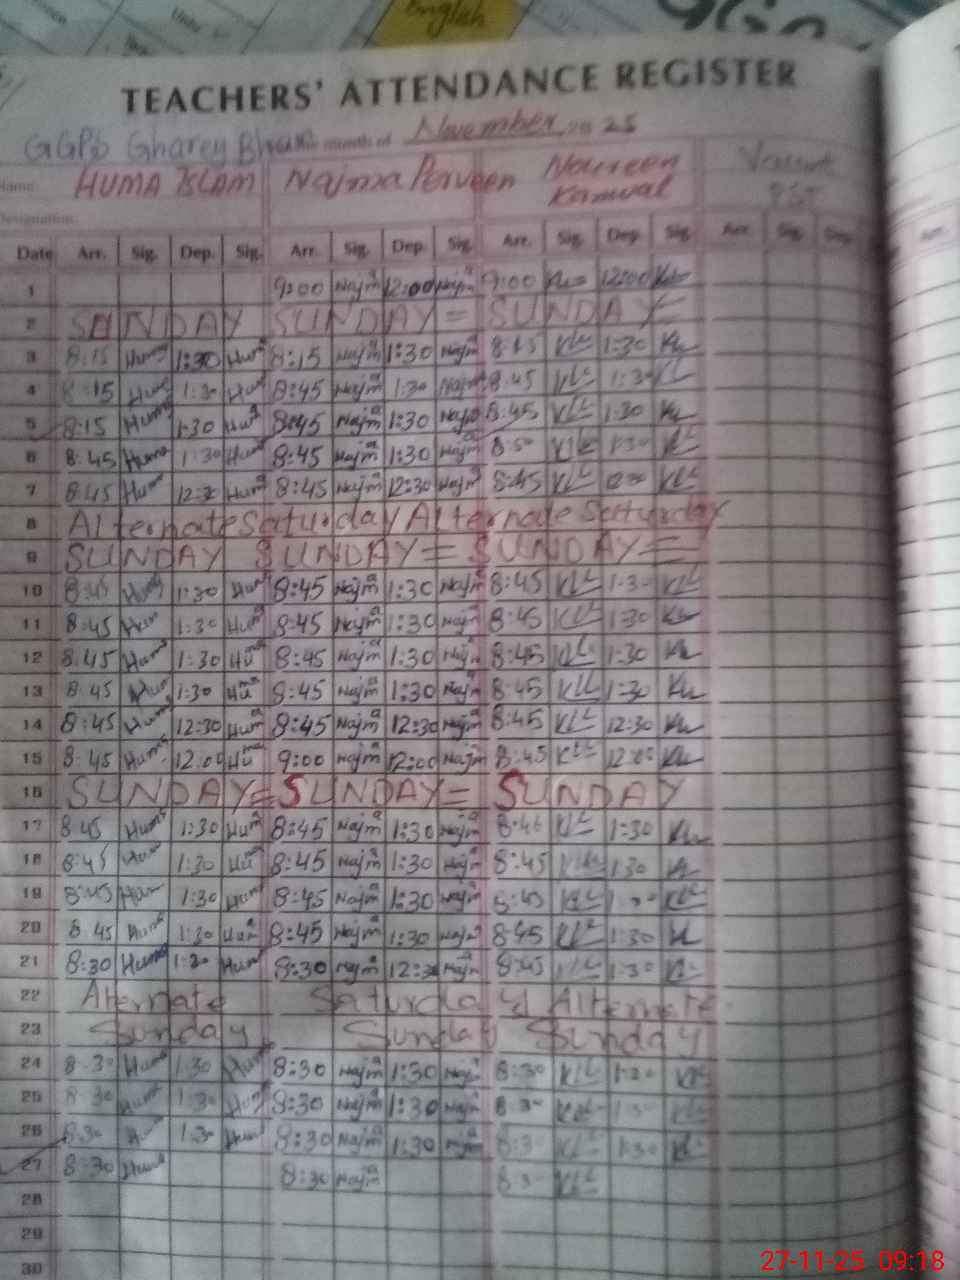 English
TEACHERS' ATTENDANCE REGISTER
GGPS Gharey Bhan the month of November 2025
Name HUMA ISLAM Najma Perveen Noureen Kanwal Vacant PST
Designation
Date Arr. Sig. Dep. Sig. Arr. Sig. Dep. Sig. Arr. Sig. Dep. Sig. Arr. Sig. Dep. Arr.
1 9:00 Najma 12:00 Najma 9:00 12:00
2 SUNDAY SUNDAY = SUNDAY =
3 8:15 Huma 1:30 Huma 8:15 Najma 1:30 Najma 8:45 1:30
4 8:15 Huma 1:30 Huma 8:45 Najma 1:30 Najma 8:45 1:30
5 8:15 Huma 1:30 Huma 8:45 Najma 1:30 Najma 8:45 1:30
6 8:45 Huma 1:30 Huma 8:45 Najma 1:30 Najma 8:50 1:30
7 8:45 Huma 12:30 Huma 8:45 Najma 12:30 Najma 8:45
8 Alternate Saturday Alternate Saturday
9 SUNDAY SUNDAY = SUNDAY =
10 8:45 Huma 1:30 Huma 8:45 Najma 1:30 Najma 8:45 1:30
11 8:45 Hum 1:30 Huma 8:45 Najma 1:30 Najma 8:45 1:30
12 8:45 Huma 1:30 Huma 8:45 Najma 1:30 Najma 8:45 1:30
13 8:45 Hum 1:30 Huma 8:45 Najma 1:30 Najma 8:45 1:30
14 8:45 Huma 12:30 Huma 8:45 Najma 12:30 Najma 8:45 12:30
15 8:45 Huma 12:00 Huma 9:00 Najma 12:00 Najma 8:45 12:00
16 SUNDAY = SUNDAY = SUNDAY
17 8:45 Huma 1:30 Huma 8:45 Najma 1:30 Najma 8:46 1:30
18 8:45 Hum 1:30 Huma 8:45 Najma 1:30 Najma 8:45 1:30
19 8:45 Hum 1:30 Huma 8:45 Najma 1:30 Najma 8:45 1:30
20 8:45 Huma 1:30 Huma 8:45 Najma 1:30 Najma 8:45 1:30
21 8:30 Huma 1:30 Huma 8:30 Najma 12:30 Najma 8:45 1:30
22 Aternate Saturday Alternate
23 Sunday Sunday Sunday
24 8:30 Huma 1:30 Huma 8:30 Najma 1:30 Najma 8:30 1:30
25 8:30 Huma 1:30 Huma 8:30 Najma 1:30 Najma 8:30 1:30
26 8:30 Huma 1:30 Huma 8:30 Najma 1:30 Najma 8:30 1:30
27 8:30 Huma 8:30 Najma 8:30
28
29
30
27-11-25 09:18